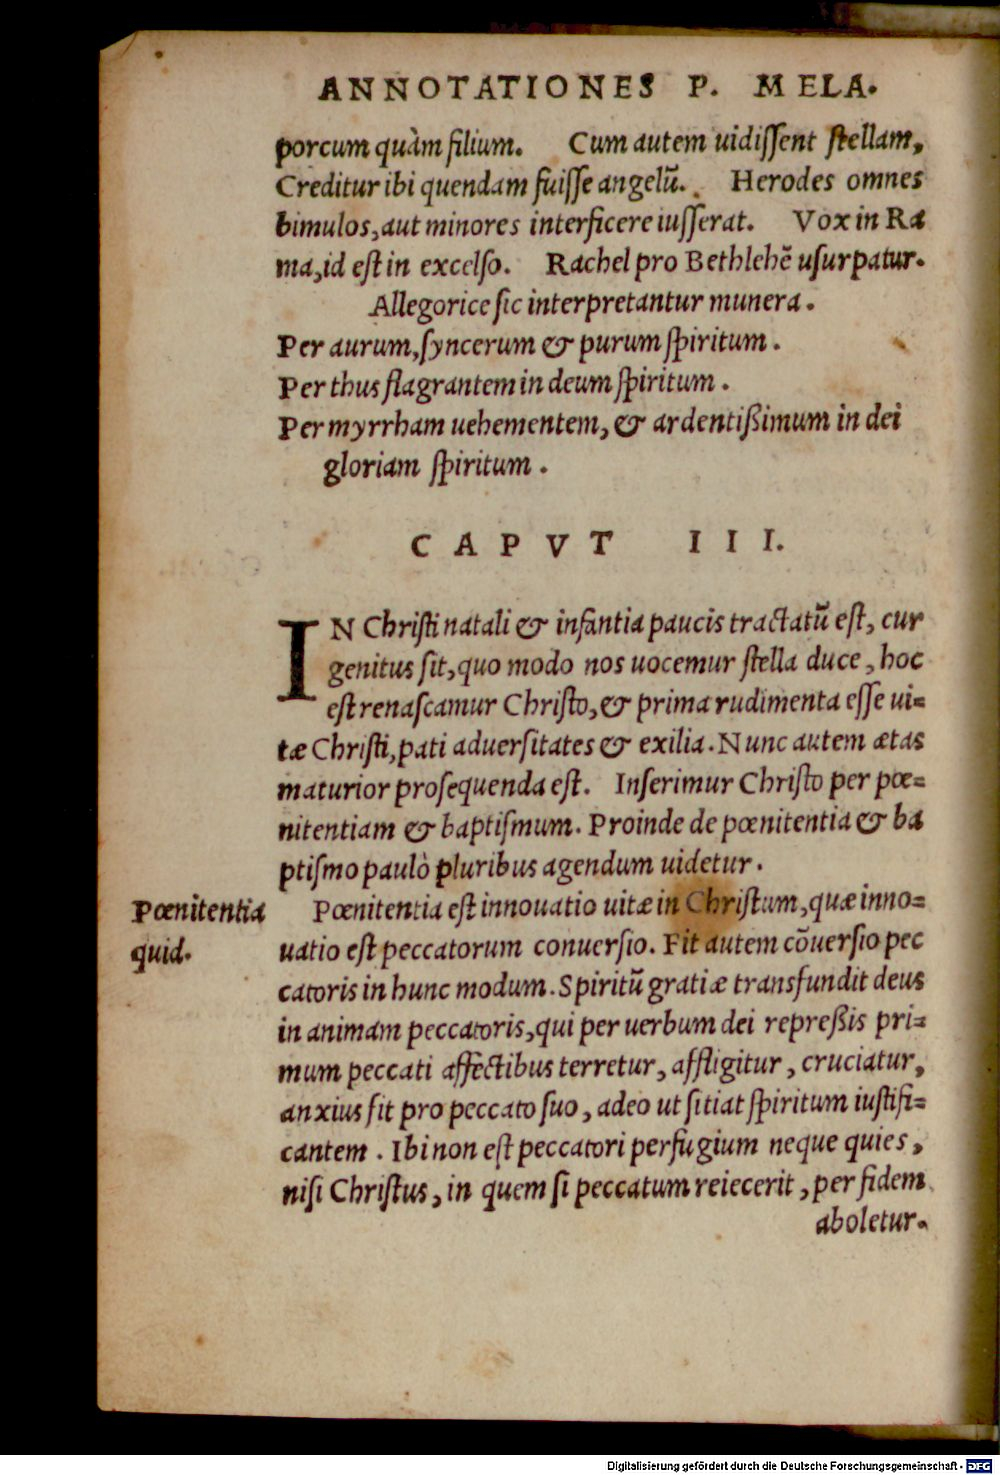 ANNOTATIONES P. MELA.
porcum quàm filium. Cum autem uidiſſent ſtellam,
Creditur ibi quendam fuiſſe angelũ. Herodes omnes
bimulos, aut minores interficere iuſſerat. Vox in Ra
ma, id eſt in excelſo. Rachel pro Bethlehẽ uſurpatur.
Allegorice ſic interpretantur munera.
Per aurum, ſyncerum & purum ſpiritum.
Per thus flagrantem in deum ſpiritum.
Per myrrham uehementem, & ardentißimum in dei
gloriam ſpiritum.
CAPVT III.
IN Chriſti natali & infantia paucis tractatũ eſt, cur
genitus ſit, quo modo nos uocemur ſtella duce, hoc
eſt renaſcamur Chriſto, & prima rudimenta eſſe ui=
tæ Chriſti, pati aduerſitates & exilia. Nunc autem ætas
maturior proſequenda eſt. Inſerimur Chriſto per pœ=
nitentiam & baptiſmum. Proinde de pœnitentia & ba
ptiſmo paulò pluribus agendum uidetur.
Pœnitentia
quid.
Pœnitentia eſt innouatio uitæ in Chriſtum, quæ inno=
uatio eſt peccatorum conuerſio. Fit autem cõuerſio pec
catoris in hunc modum. Spiritũ gratiæ transfundit deus
in animam peccatoris, qui per uerbum dei repreßis pri=
mum peccati affectibus terretur, affligitur, cruciatur,
anxius fit pro peccato ſuo, adeo ut ſitiat ſpiritum iuſtifi=
cantem. Ibi non eſt peccatori perfugium neque quies,
niſi Chriſtus, in quem ſi peccatum reiecerit, per fidem
aboletur.
Digitalisierung gefördert durch die Deutsche Forschungsgemeinschaft - DFG